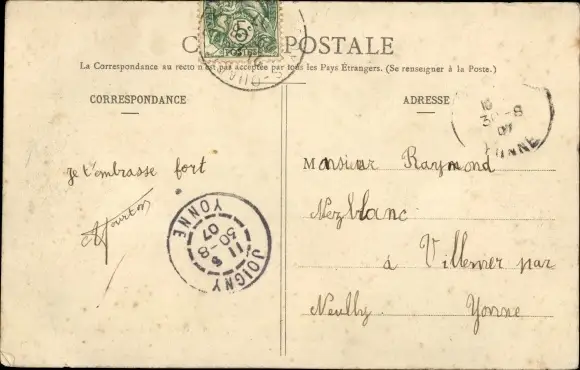 CARTE POSTALE
La Correspondance au recto n'est pas acceptée par tous les Pays Étrangers. (Se renseigner à la Poste.)
CORRESPONDANCE
ADRESSE
Je t'embrasse fort
Monsieur Raymond
Nezblanc
à Villemer par
Neuilly Yonne
JOIGNY
YONNE
11
30-8
07
30-8
07
YONNE
POSTES
5